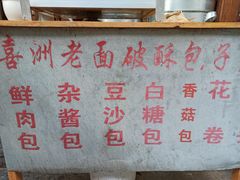 喜洲老面破酥包子
鲜肉包
杂酱包
豆沙包
白糖包
香菇包
花卷